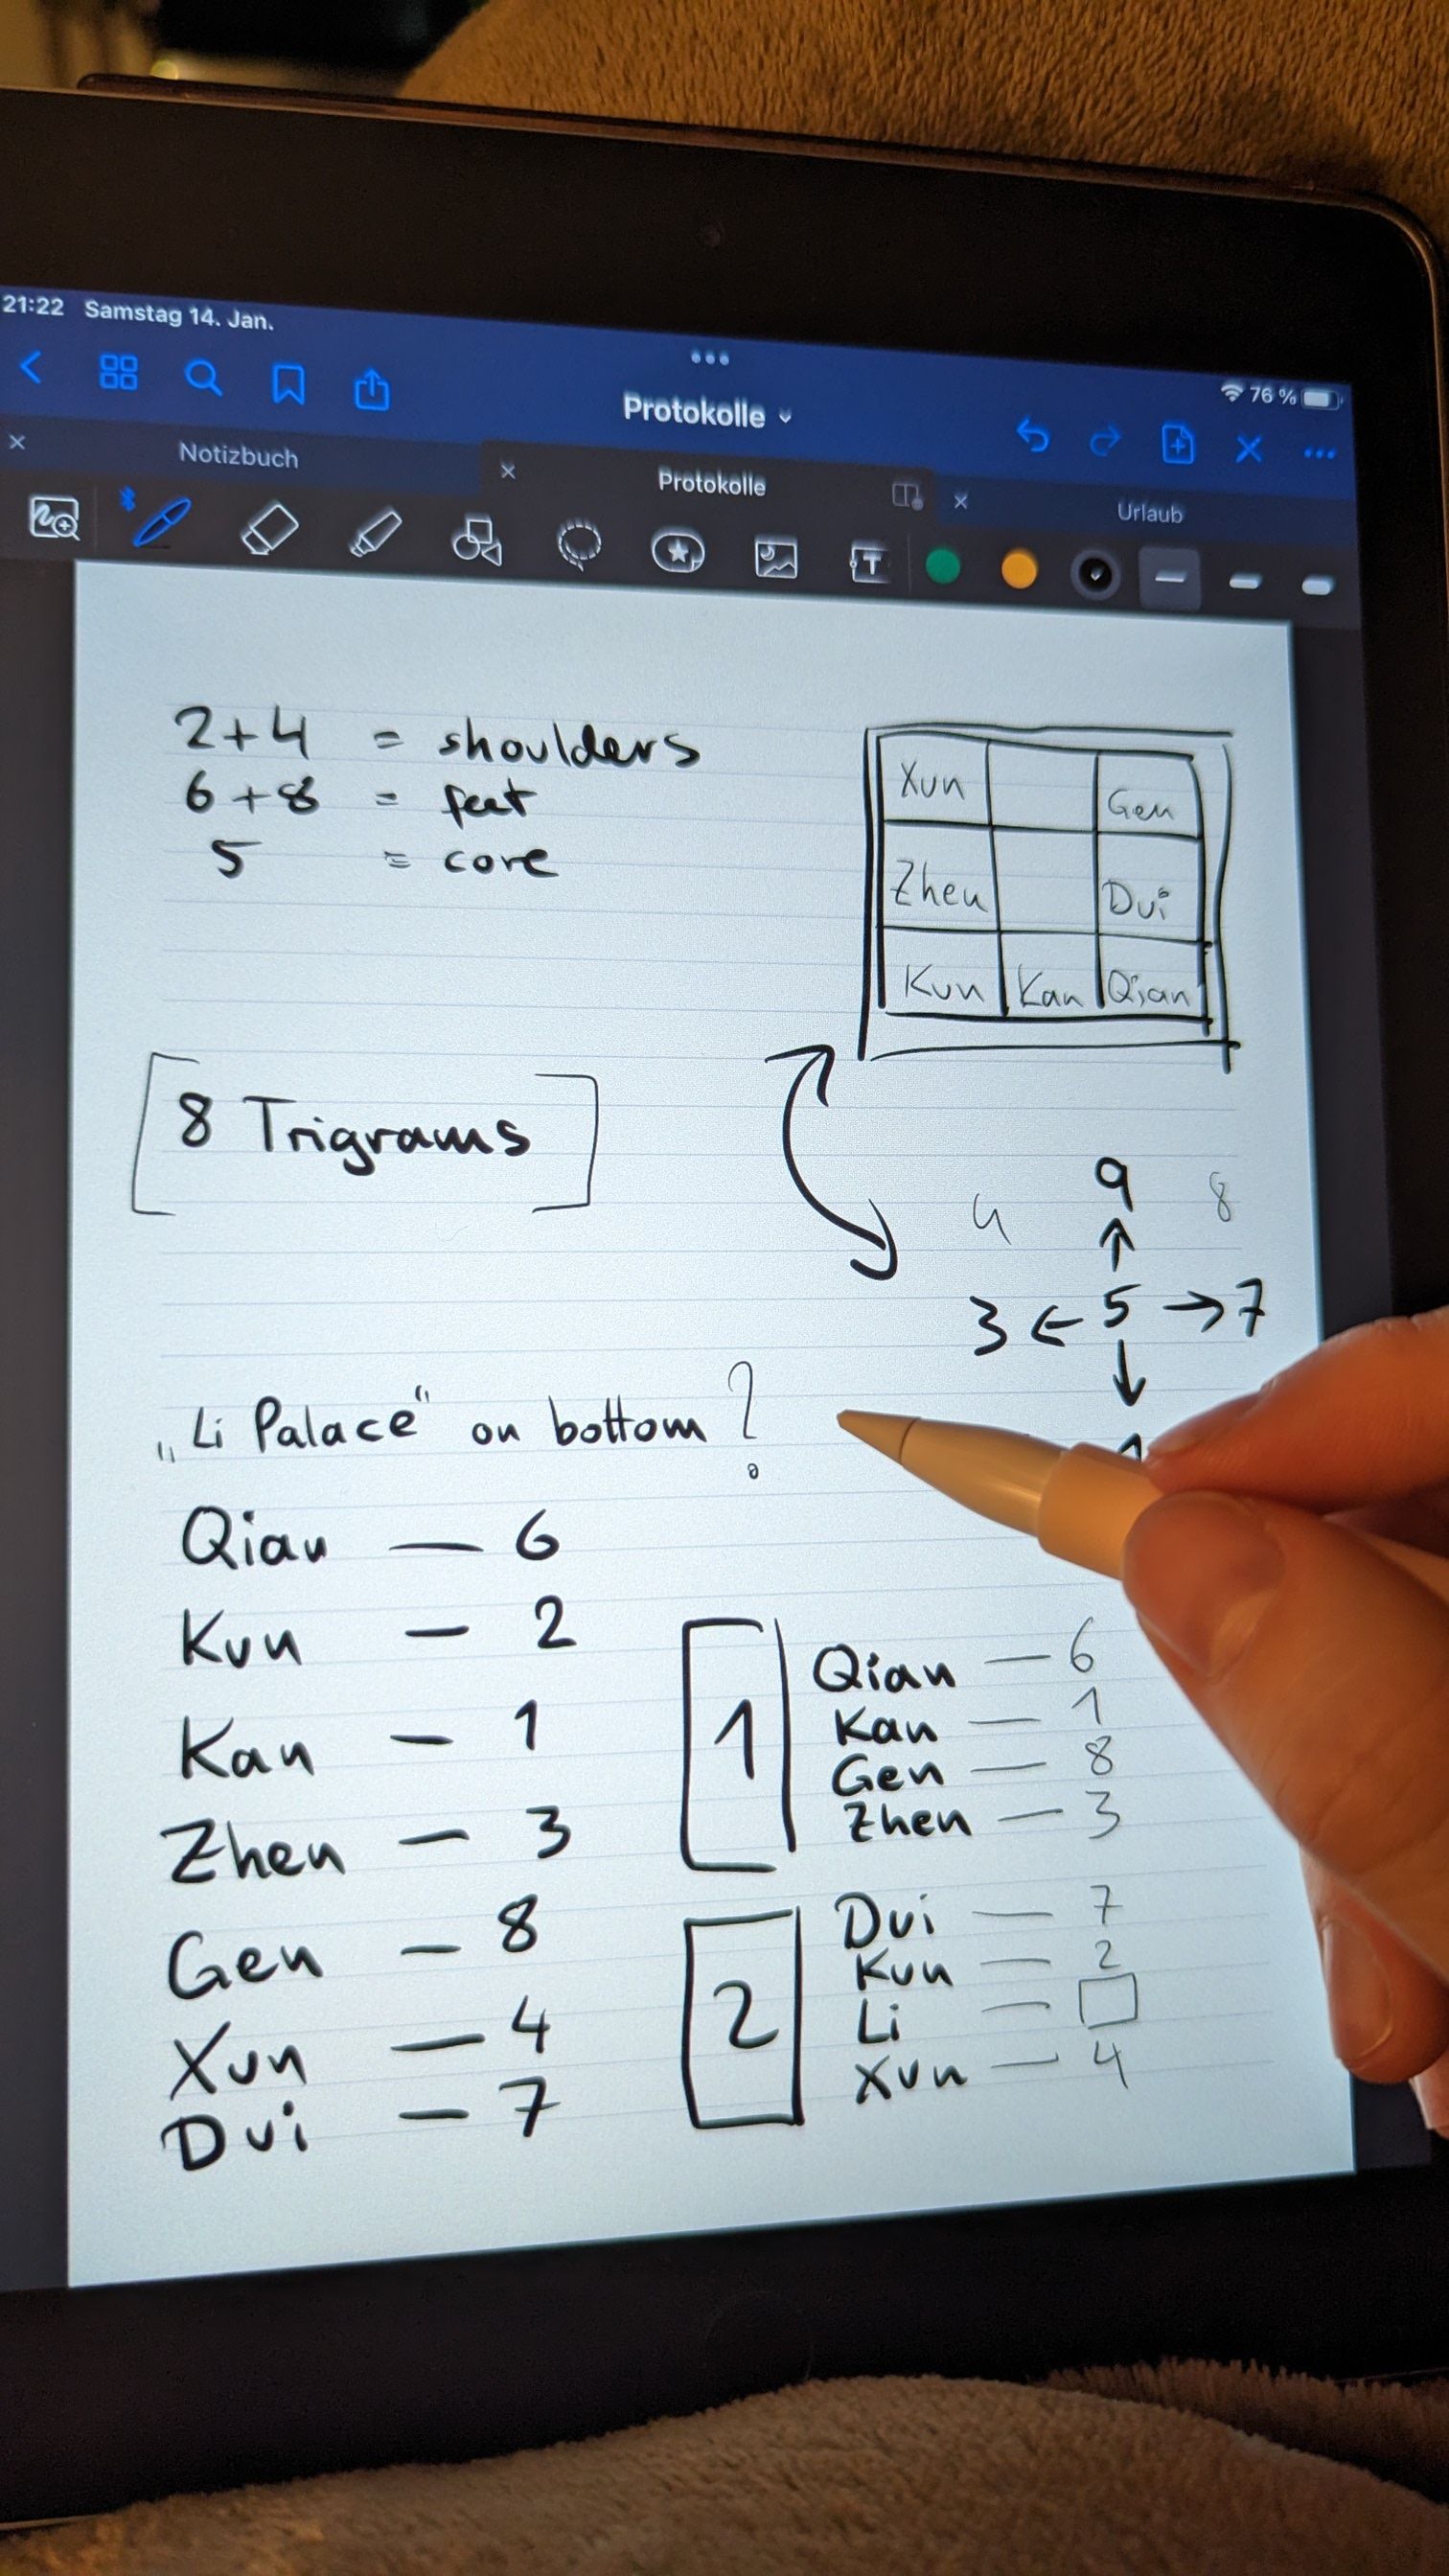 21:22 Samstag 14. Jan.
76 %
Protokolle
Notizbuch
Protokolle
Urlaub
2+4 = shoulders
6+8 = feet
5 = core
Xun Gen
Zhen Dui
Kun Kan Qian
[8 Trigrams]
4 9 8
↑
3 ← 5 → 7
↓
„Li Palace“ on bottom?
Qian — 6
Kun — 2
Kan — 1
Zhen — 3
Gen — 8
Xun — 4
Dui — 7
1
Qian — 6
Kan — 1
Gen — 8
Zhen — 3
2
Dui — 7
Kun — 2
Li — □
Xun — 4